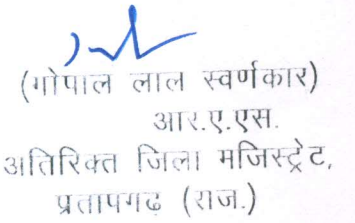 (गोपाल लाल स्वर्णकार)
आर.ए.एस.
अतिरिक्त जिला मजिस्ट्रेट,
प्रतापगढ (राज.)